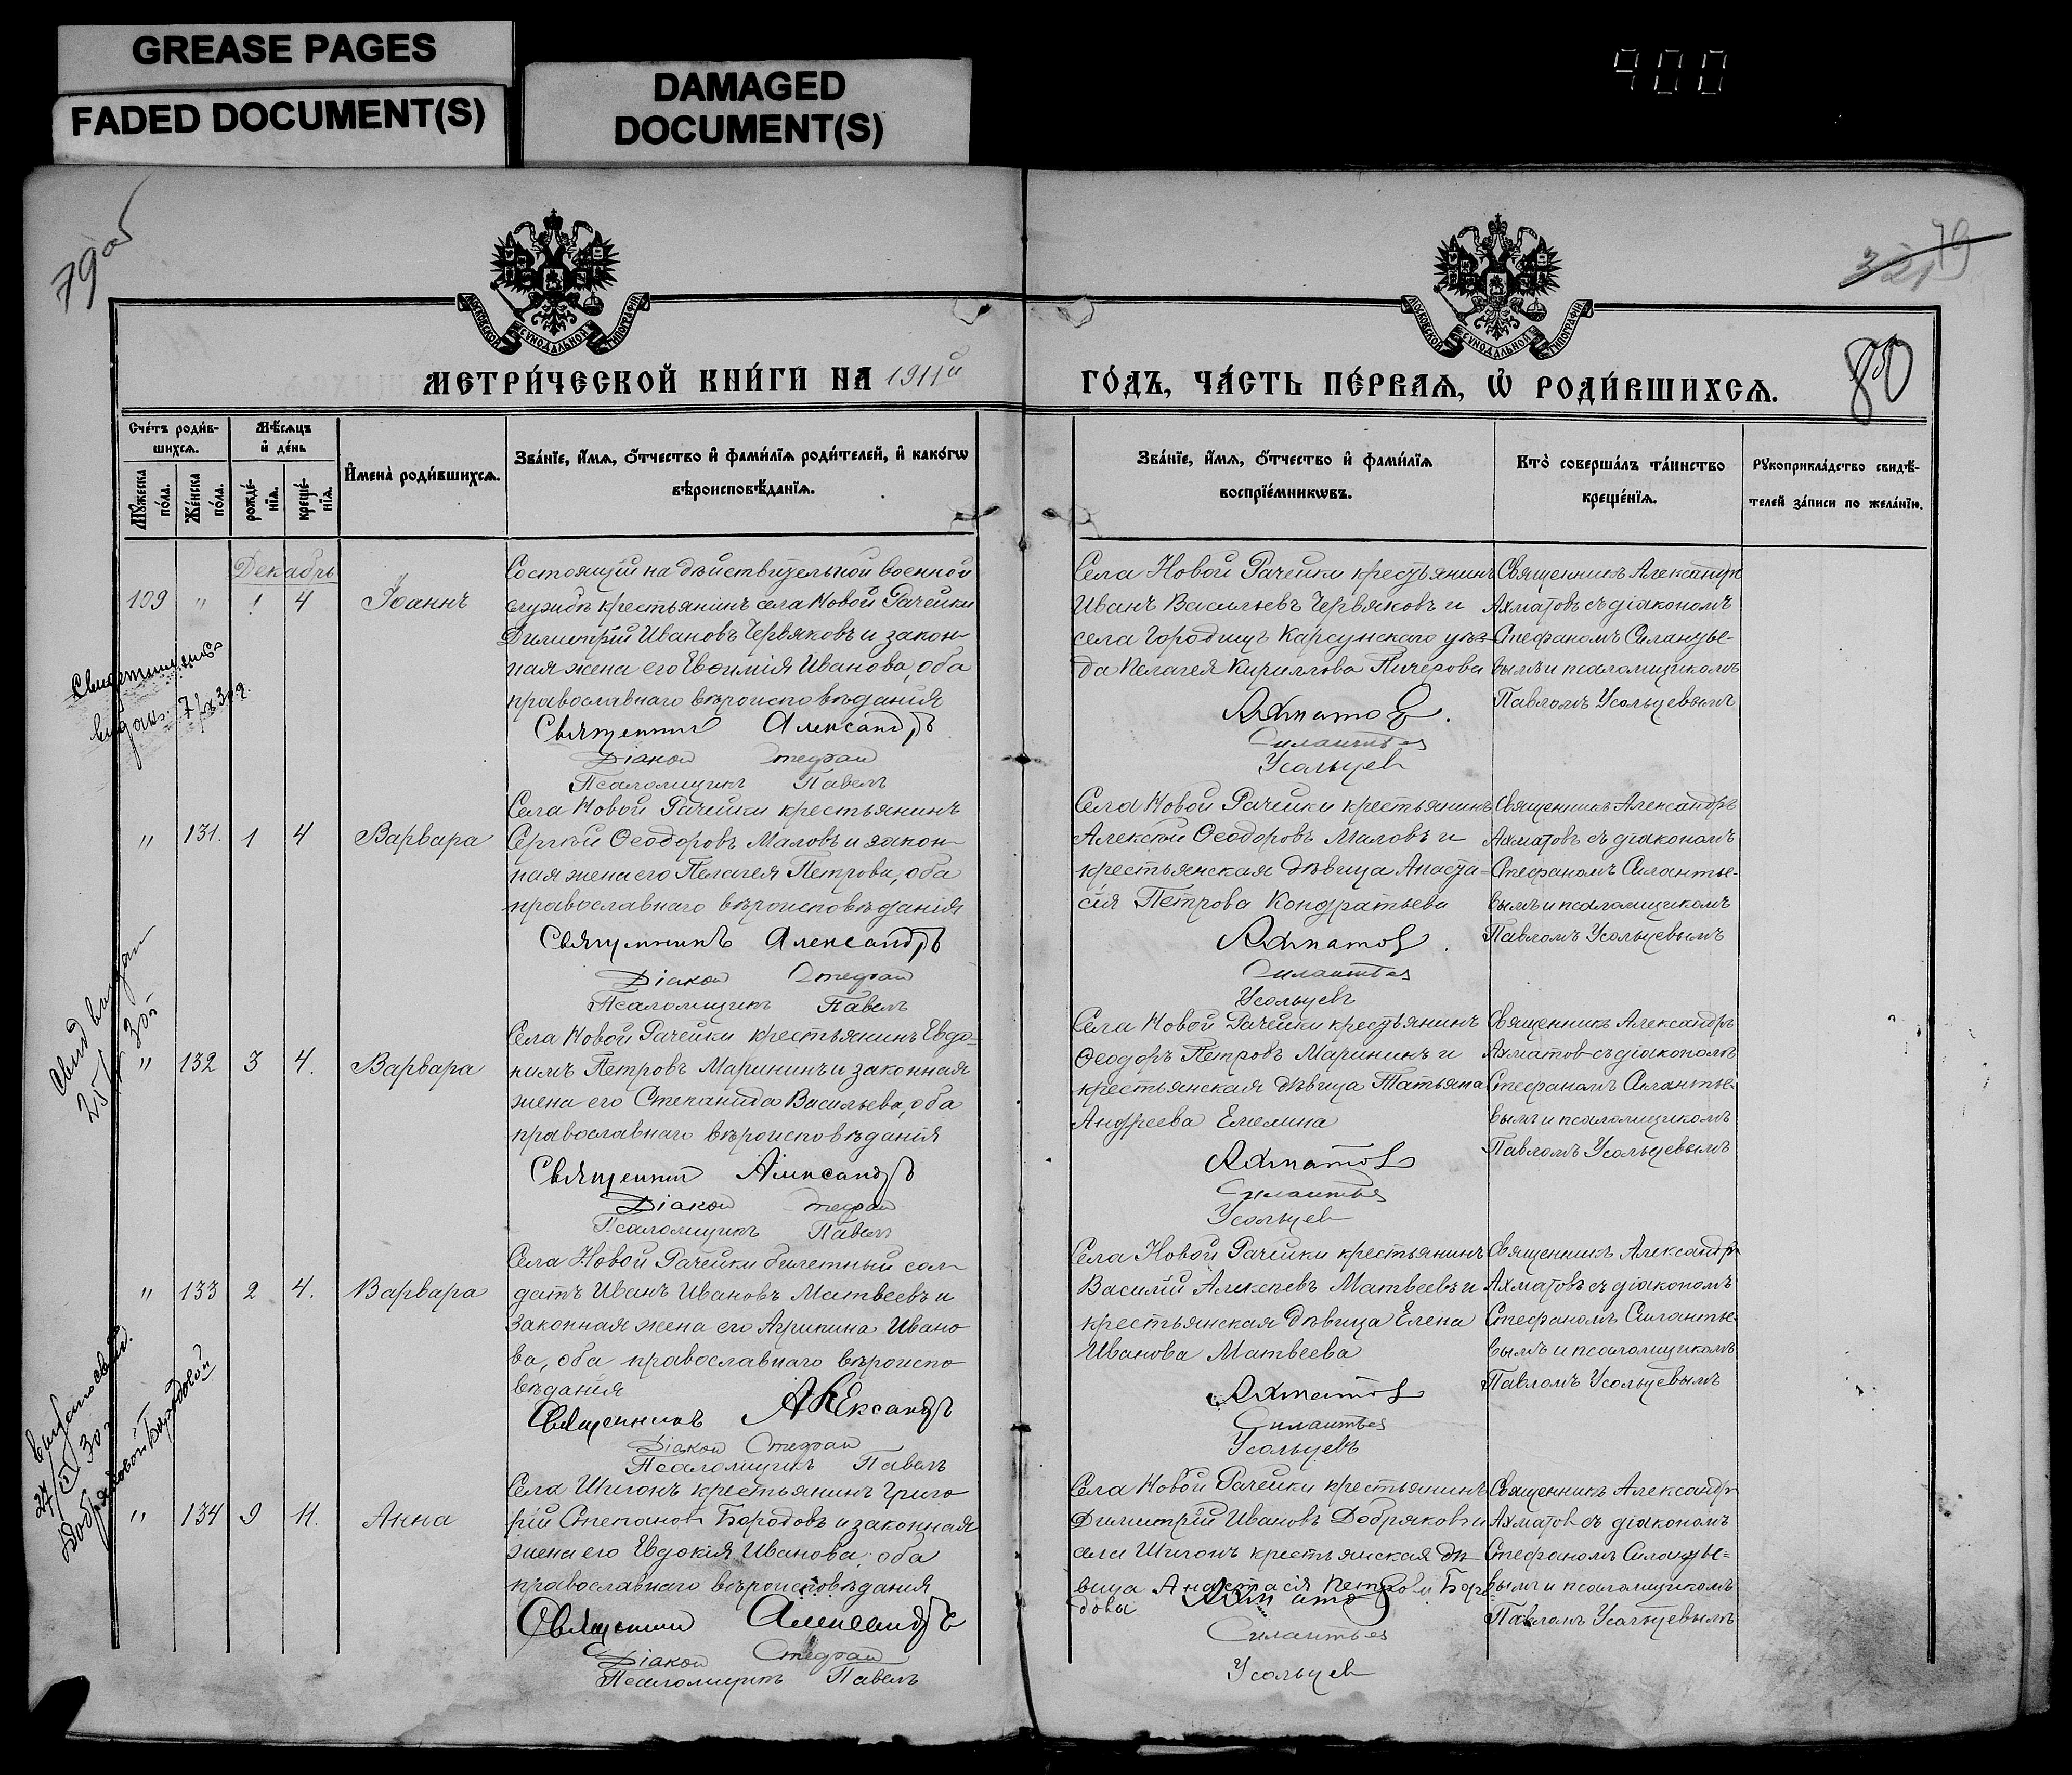 GREASE PAGES
FADED DOCUMENT(S)
DAMAGED
DOCUMENT(S)
400
79об
321
79
80
МОСКОВСКОЙ СѴНОДАЛЬНОЙ ТИПОГРАФІИ
МОСКОВСКОЙ СѴНОДАЛЬНОЙ ТИПОГРАФІИ
МЕТРИ́ЧЕСКОЙ КНИ́ГИ НА 1911й
ГО́ДЪ, ЧА́СТЬ ПЕ́РВАѦ, Ѡ РОДИ́ВШИХСѦ.
Сче́тъ роди́в-
шихсѧ.
Мꙋжеска по́ла.
Же́нска по́ла.
Мѣ́сѧцъ
и҆ де́нь
рожде́-
нїѧ.
креще́-
нїѧ.
И҆мена̀ роди́вшихсѧ.
Зва́нїе, и҆́мѧ, ѻ҆́тчество и҆ фами́лїѧ роди́телей, и҆ како́гѡ
вѣроисповѣ́данїѧ.
Зва́нїе, и҆́мѧ, ѻ҆́тчество и҆ фами́лїѧ
воспрїе́мникѡвъ.
Кто̀ соверша́лъ та́инство
креще́нїѧ.
Рꙋкоприкла́дство свидѣ́-
телей за́писи по жела́нїю.
Декабрь
109 " 1 4 Іоаннъ
Состоящій на дѣйствительной военной
службѣ крестьянинъ села Новой Рачейки
Димитрій Ивановъ Червяковъ и закон-
ная жена его Евѳимія Иванова, оба
православнаго вѣроисповѣданія
Священникъ Александръ
Діакон Стефан
Псаломщикъ Павелъ
Села Новой Рачейки крестьянинъ
Иванъ Васильевъ Червяковъ и
села Городищъ Карсунскаго уѣз-
да Пелагея Кириллова Пичерова
Ахматов.
Силантьев
Усольцев
Священникъ Александръ
Ахматовъ съ діакономъ
Стефаномъ Силантье-
вымъ и псаломщикомъ
Павломъ Усольцевымъ
" 131. 1 4 Варвара
Села Новой Рачейки крестьянинъ
Сергѣй Ѳеодоровъ Маловъ и закон-
ная жена его Пелагея Петрова, оба
православнаго вѣроисповѣданія
Священникъ Александръ
Діакон Стефан
Псаломщикъ Павелъ
Села Новой Рачейки крестьянинъ
Алексѣй Ѳеодоровъ Маловъ и
крестьянская дѣвица Анаста-
сія Петрова Кондратьева
Ахматов.
Силантьев
Усольцевъ
Священникъ Александръ
Ахматовъ съ діакономъ
Стефаномъ Силантье-
вымъ и псаломщикомъ
Павломъ Усольцевымъ
" 132 3 4. Варвара
Села Новой Рачейки крестьянинъ Евдо-
кимъ Петровъ Марининъ и законная
жена его Степанида Васильева, оба
православнаго вѣроисповѣданія
Священникъ Александръ
Діакон Стефан
Псаломщикъ Павелъ
Села Новой Рачейки крестьянинъ
Ѳеодоръ Петровъ Марининъ и
крестьянская дѣвица Татьяна
Андреева Емелина
Ахматов
Силантьев
Усольцев
Священникъ Александръ
Ахматов съ діакономъ
Стефаномъ Силантье-
вымъ и псаломщикомъ
Павломъ Усольцевымъ
" 133 2 4. Варвара
Села Новой Рачейки билетный сол-
датъ Иванъ Ивановъ Матвеевъ и
законная жена его Агрипина Ивано
ва, оба православнаго вѣроиспо
вѣданія
Священникъ Александръ
Діакон Стефан
Псаломщикъ Павелъ
Села Новой Рачейки крестьянинъ
Василій Алексѣевъ Матвеевъ и
крестьянская дѣвица Елена
Иванова Матвеева
Ахматов
Силантьев
Усольцевъ
Священникъ Александръ
Ахматовъ съ діакономъ
Стефаномъ Силантье-
вымъ и псаломщикомъ
Павломъ Усольцевымъ
" 134 9 11. Анна
Села Шигонъ крестьянинъ Григо
рій Степановъ Бородовъ и законная
жена его Евдокія Иванова, оба
православнаго вѣроисповѣданія
Священник Александръ
Діакон Стефан
Псаломщикъ Павелъ
Села Новой Рачейки крестьянинъ
Димитрій Ивановъ Добряковъ и
села Шигонъ крестьянская дѣ-
вица Анастасія Петрова Боро-
дова
Ахматов
Силантьев
Усольцев
Священникъ Александръ
Ахматов съ діакономъ
Стефаномъ Силантье-
вымъ и псаломщикомъ
Павломъ Усольцевымъ
выдан
Свид выдан
25 30г
27/II 30г
Бородовой